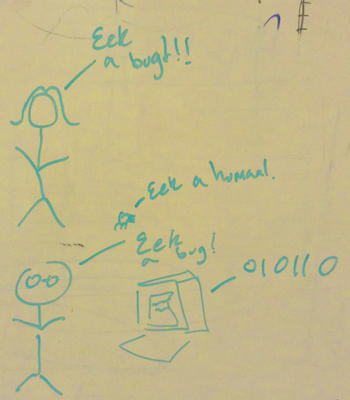 Eek
a bug!!!
Eek a human.
Eek
a bug!
010110